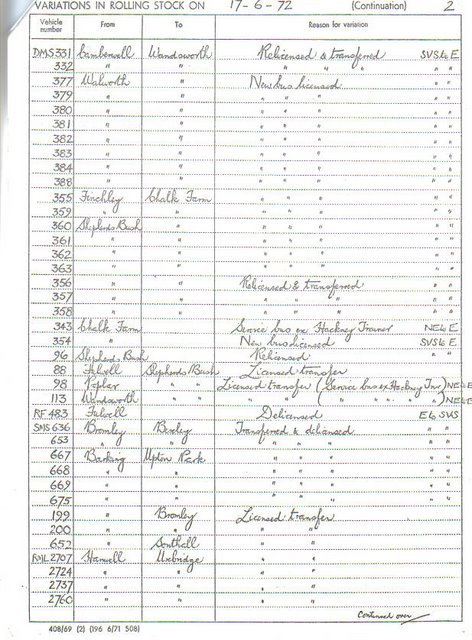 VARIATIONS IN ROLLING STOCK ON 17-6-72 (Continuation) 2
Vehicle number From To Reason for variation
DMS 331 Camberwell Wandsworth Relicensed & transferred SVS to E
332 " " " " " " "
377 Walworth " New bus licensed " "
379 " " " " " " "
380 " " " " " " "
381 " " " " " " "
382 " " " " " " "
383 " " " " " " "
384 " " " " " " "
388 " " " " " " "
355 Finchley Chalk Farm " " " " "
359 " " " " " " "
360 Shepherds Bush " " " " " "
361 " " " " " " "
362 " " " " " " "
363 " " " " " " "
356 " " Relicensed & transferred " "
357 " " " " " " "
358 " " " " " " "
343 Chalk Farm Service bus ex Hackney Trainer NE to E
354 " New bus licensed SVS to E
96 Shepherds Bush Relicensed " "
88 Fulwell Shepherds Bush Licensed transfer
98 Poplar " " Licensed transfer (Service bus ex Hackney Tnr) NE to E
113 Wandsworth " " " " ( " " " " " ) NE to E
RF 483 Fulwell Delicensed E to SVS
SMS 636 Bromley Bexley Transferred & delicensed " "
653 " " " " " " "
667 Barking Upton Park " " " " "
668 " " " " " " "
669 " " " " " " "
675 " " " " " " "
199 " Bromley Licensed transfer
200 " " " "
652 " Southall " "
RML 2707 Hanwell Uxbridge " "
2724 " " " "
2737 " " " "
2760 " " " "
Continued over
408/69 (2) (196 6/71 508)